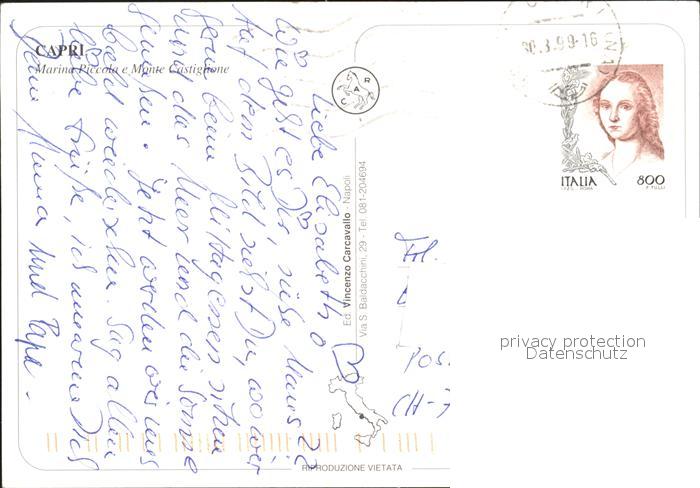 CAPRI
Marina Piccola e Monte Castiglione
Liebe Elisabeth
Wie geht es Dir, süße Maus
Auf dem Bild siehst Du, wo wir
gern beim Mittagessen sitzen
und das Meer und die Sonne
geniessen. Jetzt werden wir uns
bald wiedersehen. Sag allen
liebe Grüße, ich umarme Dich
Deine Mama und Papa.
R
A
C
Ed. Vincenzo Carcavallo - Napoli
Via S. Baldacchini, 29 - Tel. 081-204694
RIPRODUZIONE VIETATA
.3.99-16
ITALIA 800
I.P.Z.S. - ROMA F. TULLI
Frl.
POS
CH-7
privacy protection
Datenschutz